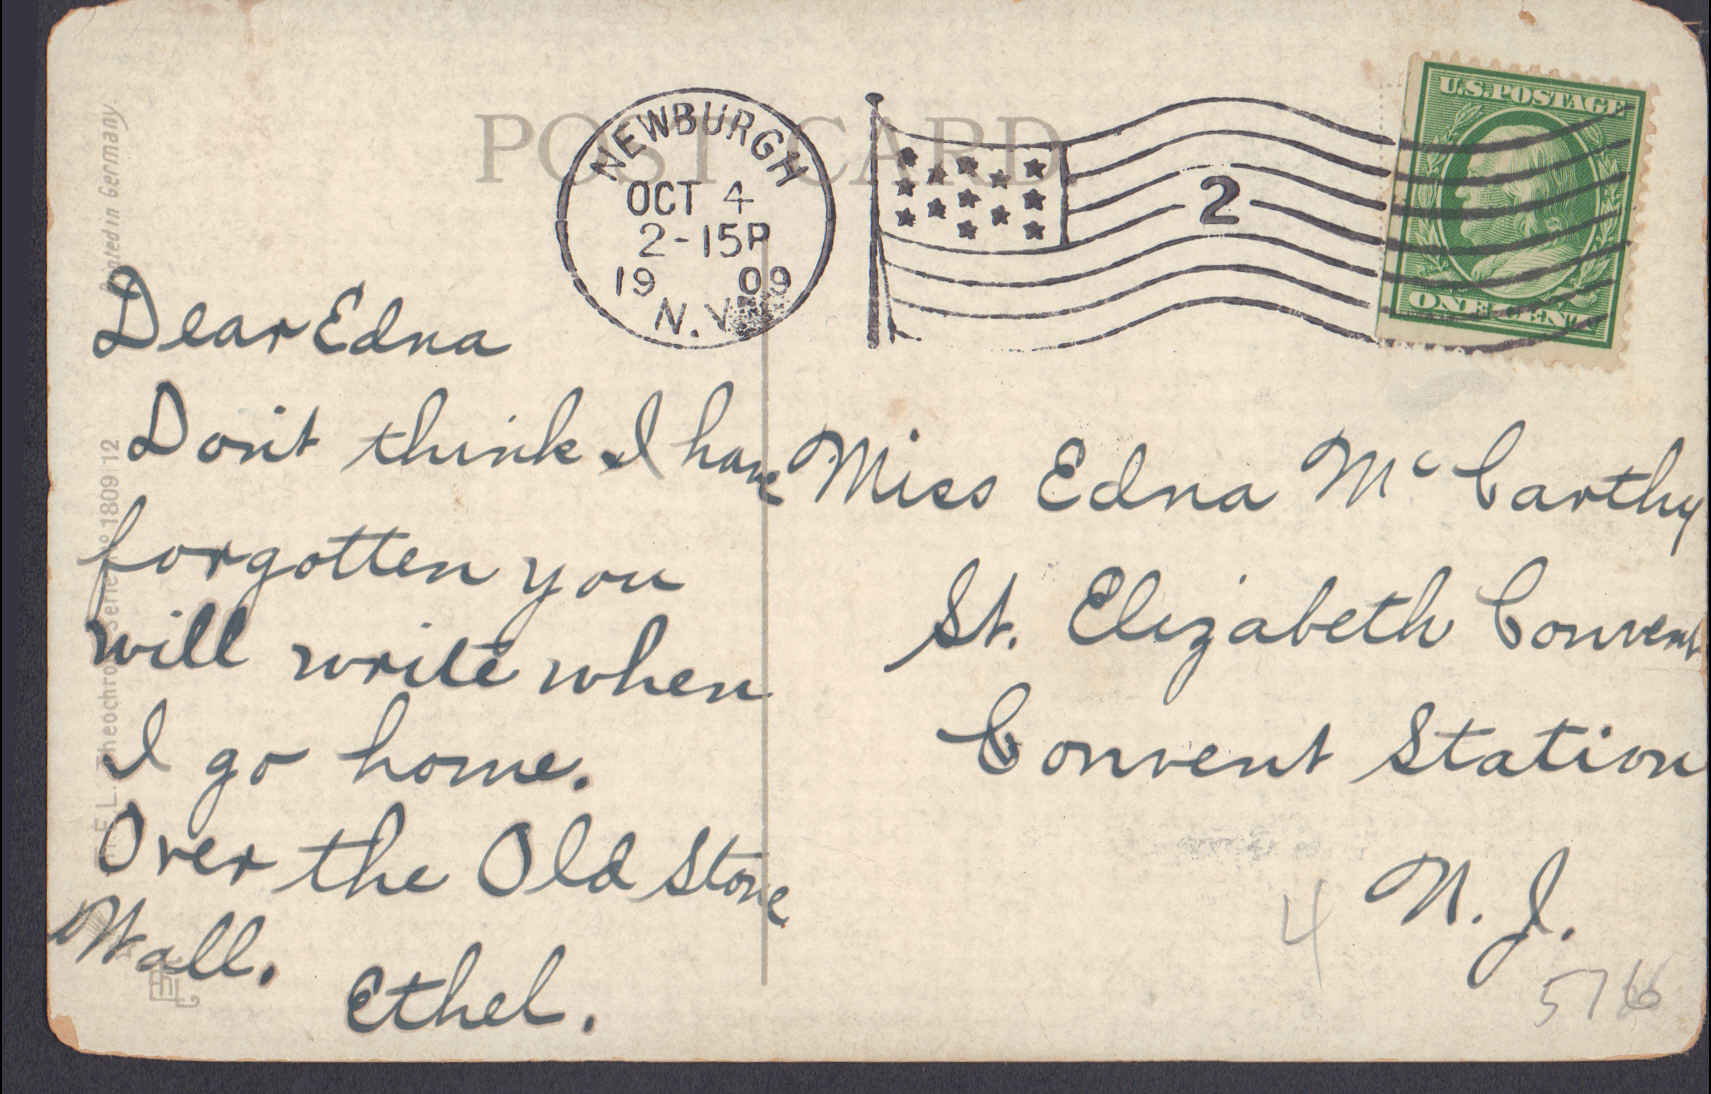 POST CARD
NEWBURGH
OCT 4
2-15P
19 09
N.Y.
2
U.S. POSTAGE
ONE CENT
Dear Edna
Don't think I have
forgotten you
will write when
I go home.
Over the Old Stone
Wall.
Ethel.
Miss Edna Mc Carthy
St. Elizabeth Convent
Convent Station
N. J.
4
Printed in Germany
E. L. Theochrom Serie No 1809 12